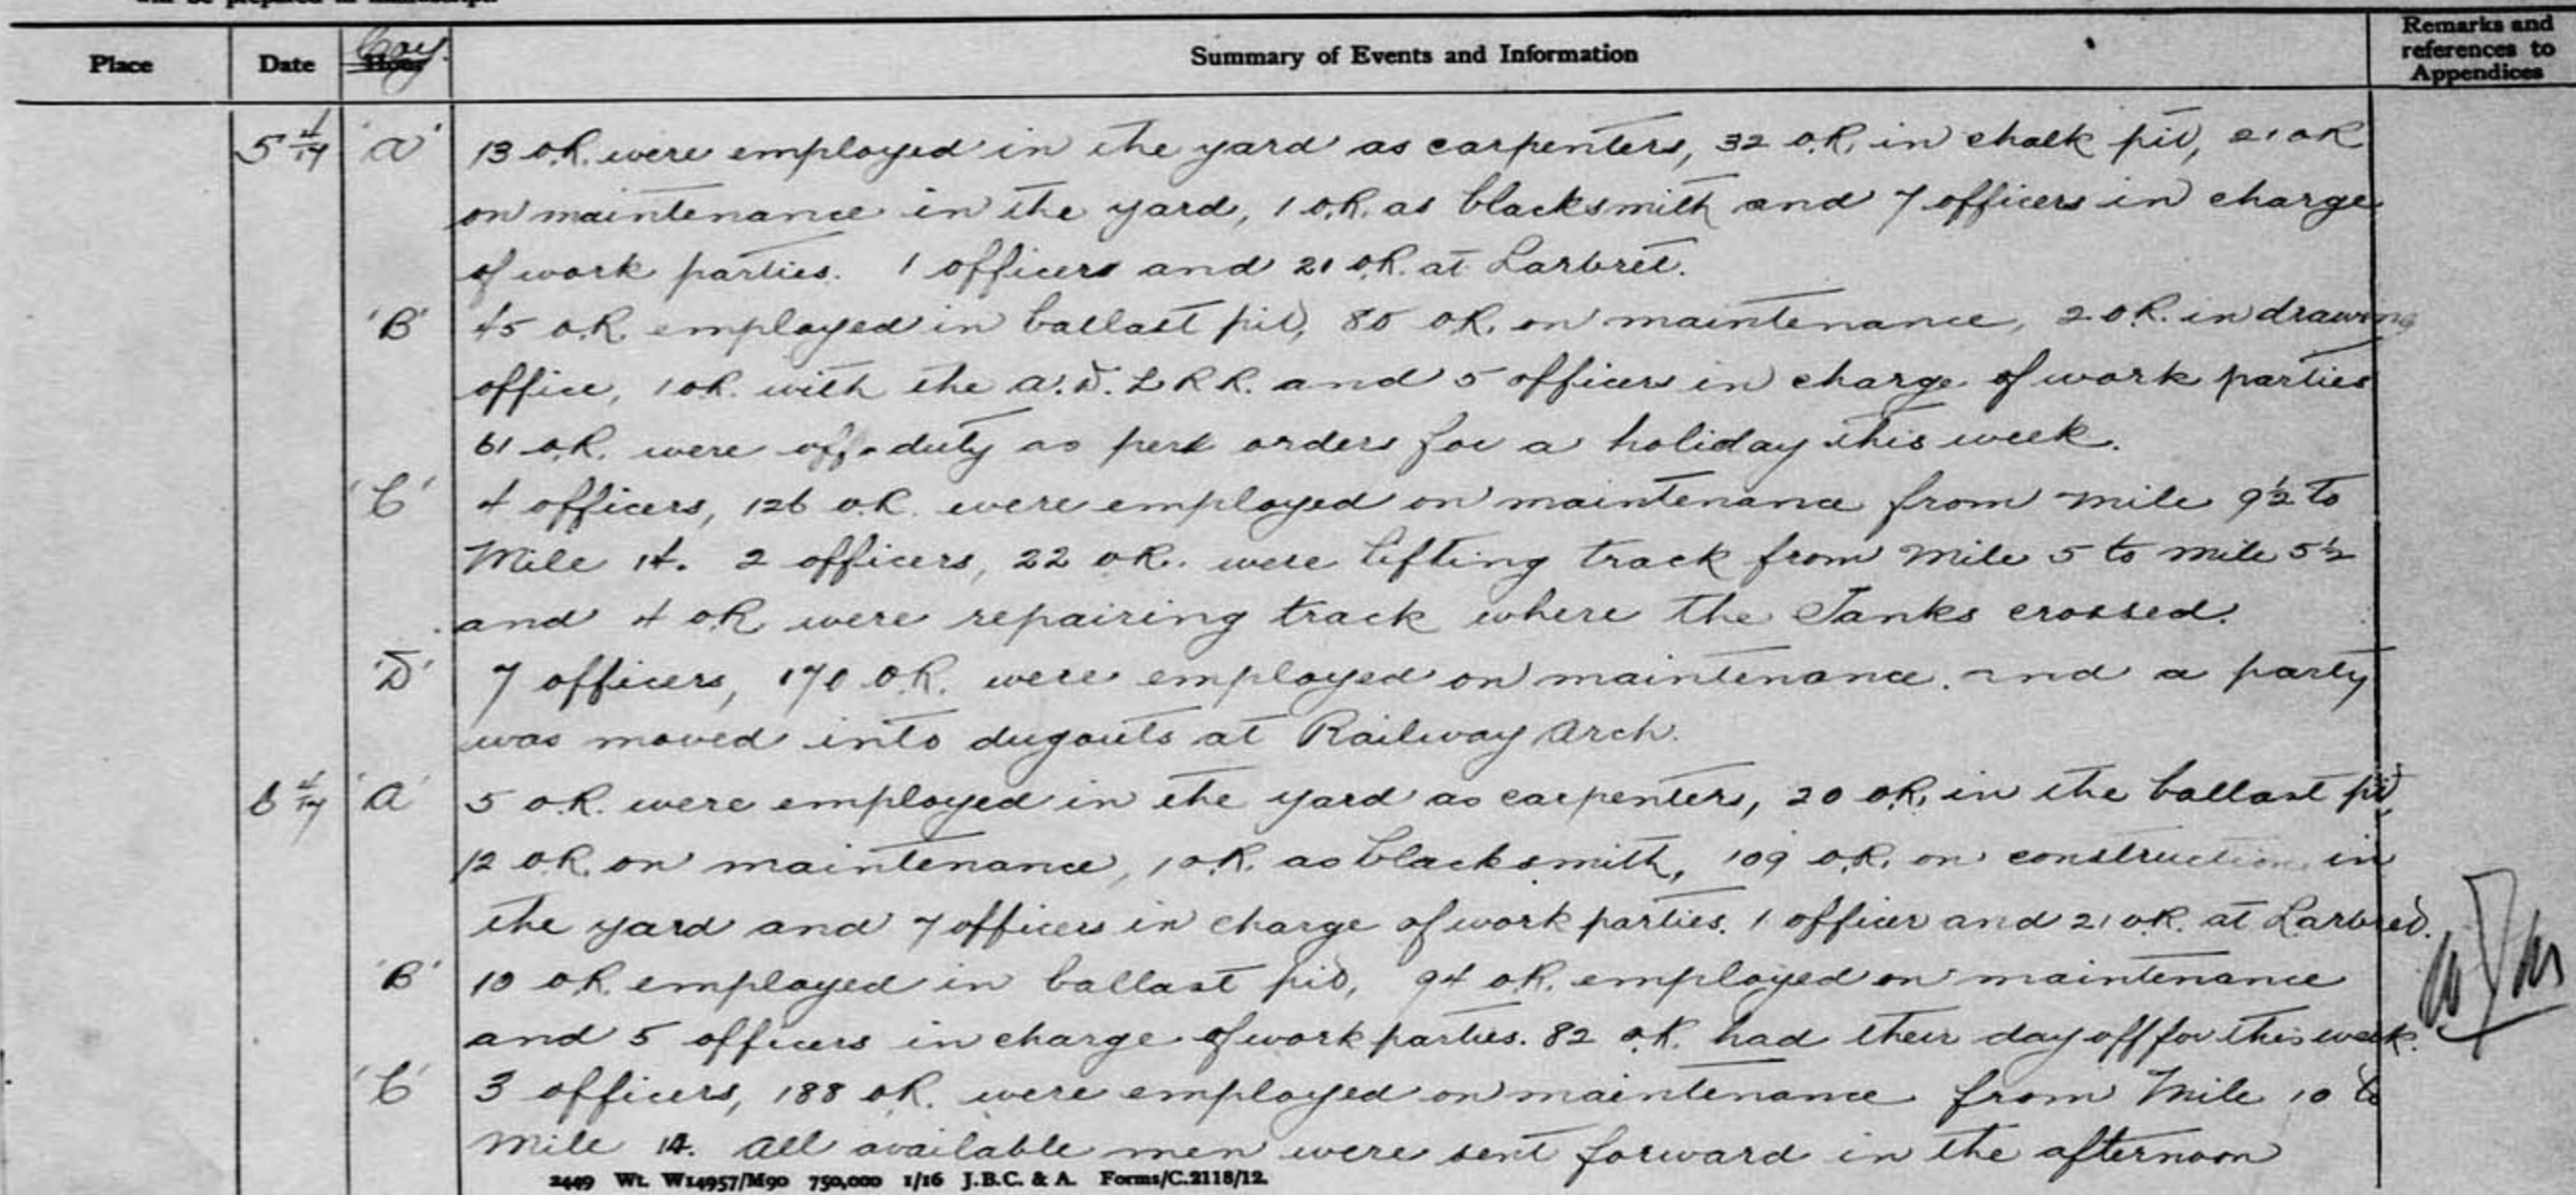 Place Date Hour Coy. Summary of Events and Information Remarks and references to Appendices
5 4/17 'A' 13 O.R. were employed in the yard as carpenters, 32 O.R. in chalk pit, 21 OR
on maintenance in the yard, 1 O.R. as blacksmith and 7 officers in charge
of work parties. 1 officers and 21 O.R. at Larbret.
'B' 45 O.R. employed in ballast pit, 80 O.R. on maintenance, 2 O.R. in drawing
office, 1 OR. with the A.D.L.R.R. and 5 officers in charge of work parties
61 O.R. were off duty as per orders for a holiday this week.
'C' 4 officers, 126 O.R. were employed on maintenance from Mile 9½ to
Mile 14. 2 officers, 22 O.R. were lifting track from Mile 5 to mile 5½
and 4 O.R. were repairing track where the Tanks crossed.
'D' 7 officers, 170 O.R. were employed on maintenance. and a party
was moved into dugouts at Railway Arch.
6 4/17 'A' 5 O.R. were employed in the yard as carpenters, 20 O.R. in the ballast pit,
12 O.R. on maintenance, 1 O.R. as blacksmith, 109 O.R. on construction in
the yard and 7 officers in charge of work parties. 1 officer and 21 O.R. at Larbret.
'B' 10 O.R. employed in ballast pit, 94 O.R. employed on maintenance
and 5 officers in charge of work parties. 82 O.R. had their day off for this week.
'C' 3 officers, 188 O.R. were employed on maintenance from Mile 10 to
Mile 14. All available men were sent forward in the afternoon
2449 Wt. W14957/M90 750,000 1/16 J.B.C. & A. Forms/C.2118/12.